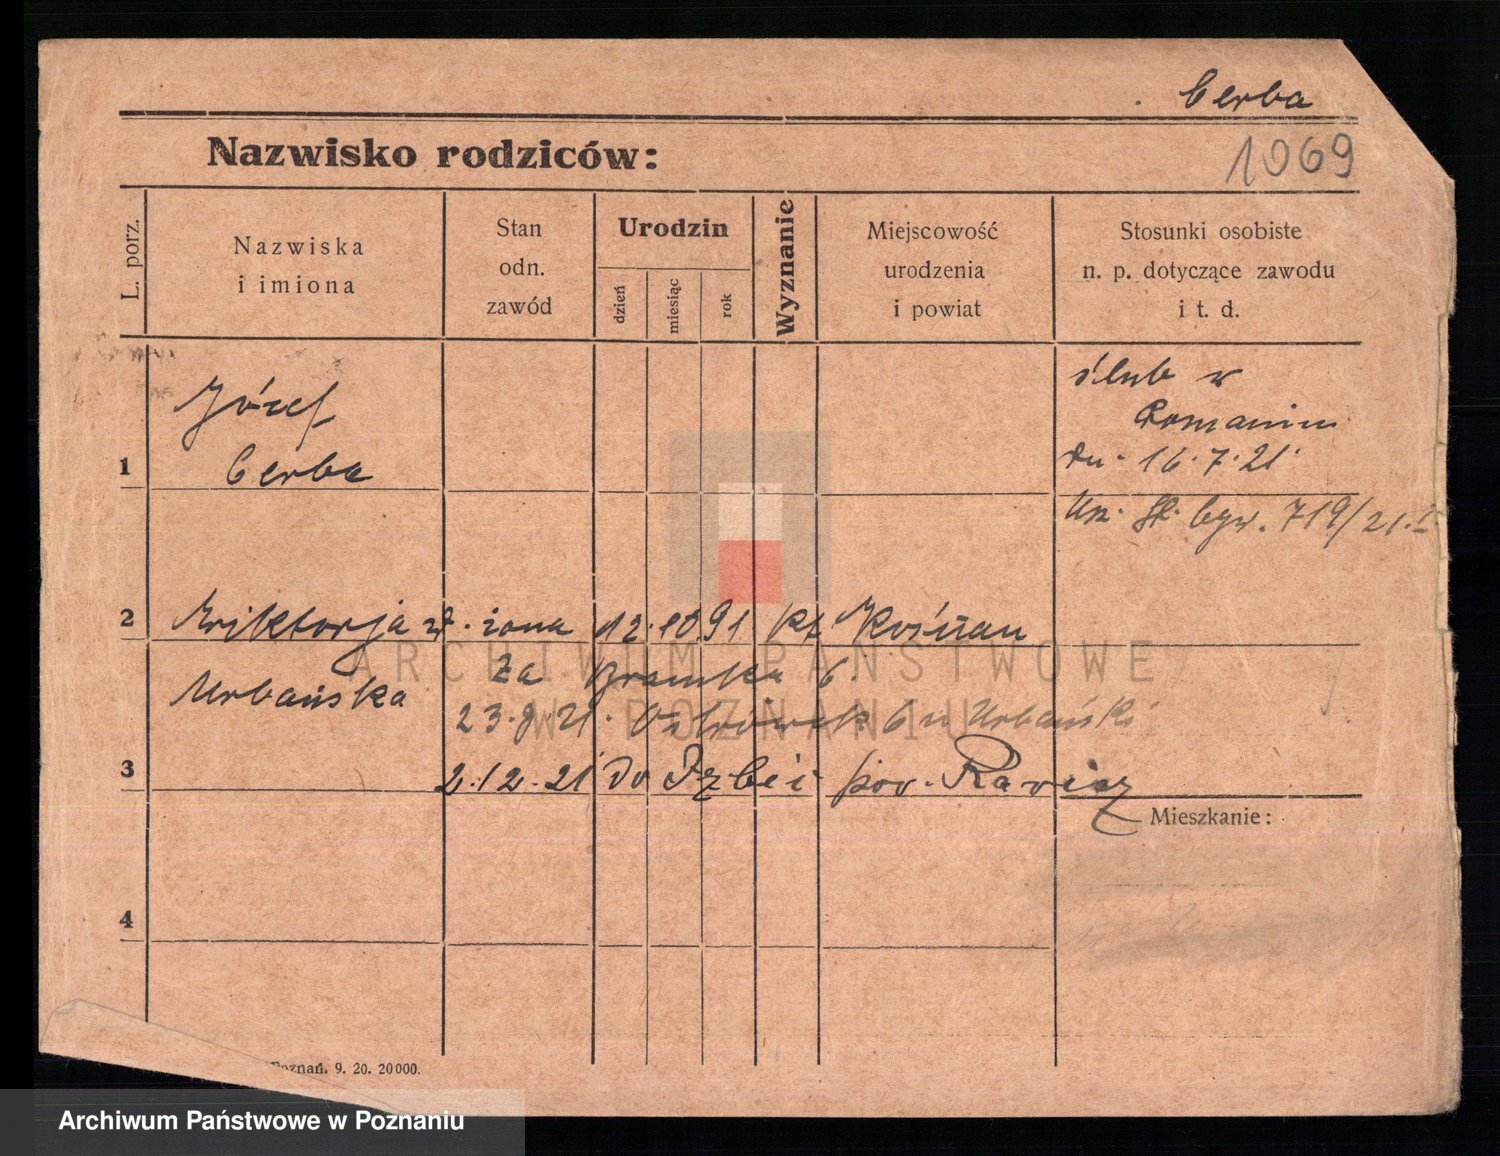 Cerba
1069
Nazwisko rodziców:
L. porz.
Nazwiska
i imiona
Stan
odn.
zawód
Urodzin
dzień
miesiąc
rok
Wyznanie
Miejscowość
urodzenia
i powiat
Stosunki osobiste
n. p. dotyczące zawodu
i t. d.
1
Józef
Cerba
ślub w
Poznaniu
dn. 16.7.21
719/21.I
2
Wiktorja z d. żona 12.10.91 kt Kościan
Urbańska
Za Bramka 6.
23.9.21. Ostrówek 6 u Urbański
3
2.12.21 do Izbic pow. Rawicz
Mieszkanie:
4
Poznań. 9. 20. 20000.
ARCHIWUM PAŃSTWOWE
W POZNANIU
Archiwum Państwowe w Poznaniu